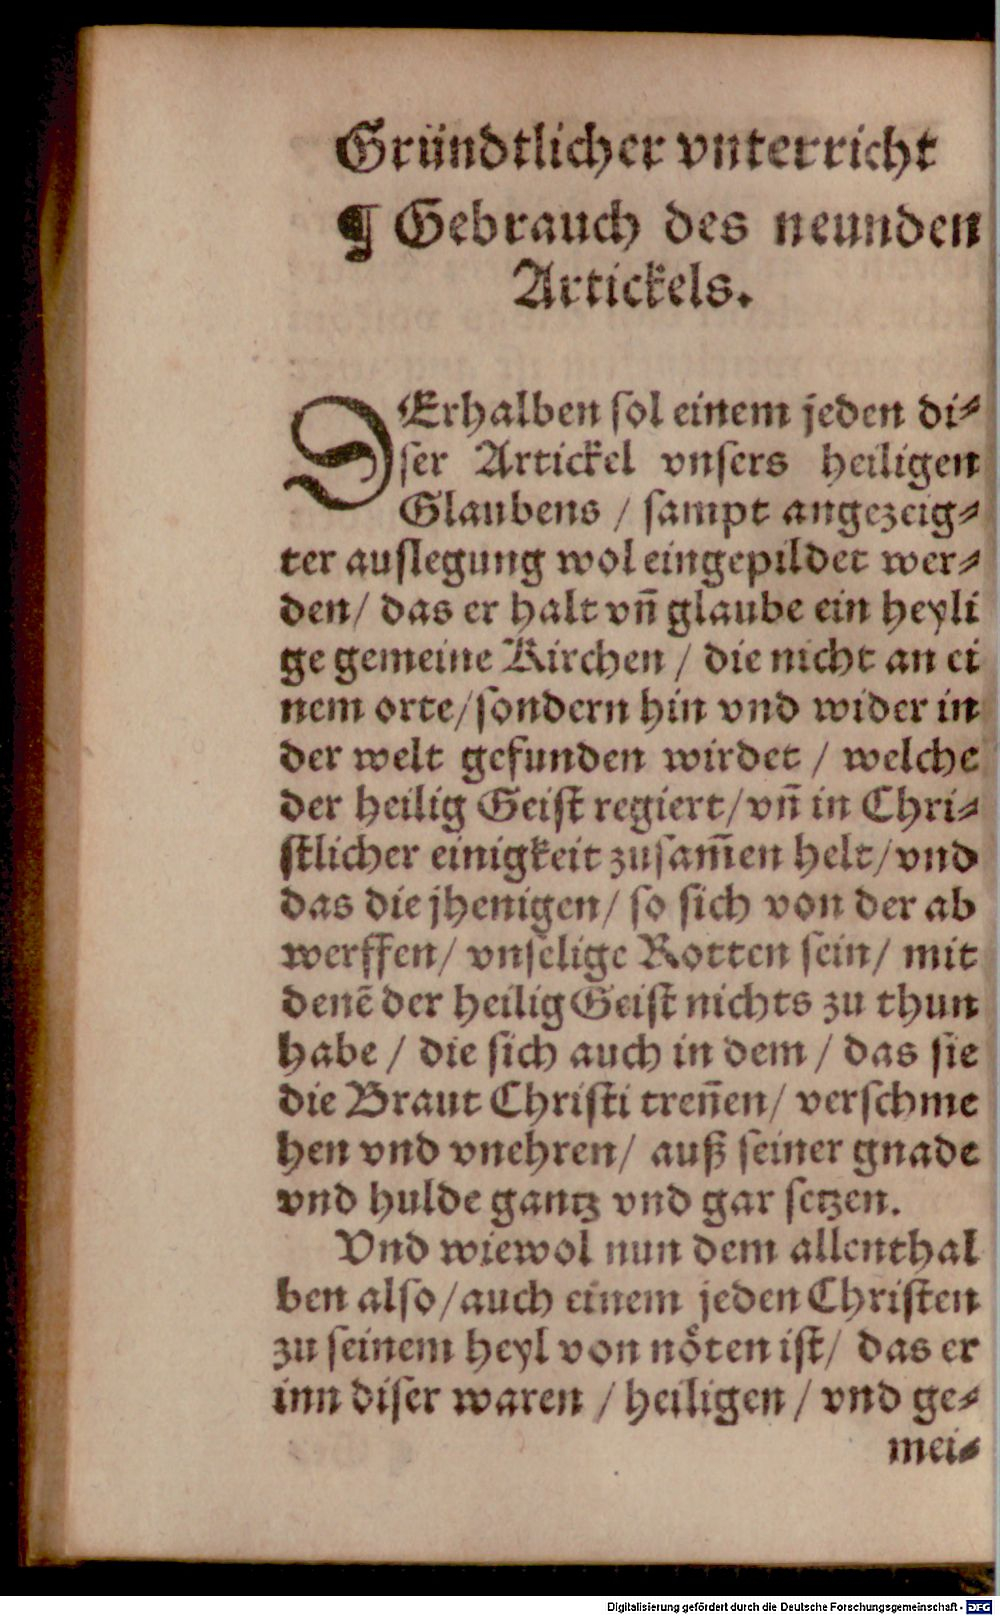 Gründtlicher vnterricht
¶ Gebrauch des neunden
Artickels.
DErhalben sol einem jeden di⸗
ser Artickel vnsers heiligen
Glaubens / sampt angezeig⸗
ter auslegung wol eingepildet wer⸗
den / das er halt vn̄ glaube ein heyli
ge gemeine Kirchen / die nicht an ei
nem orte / sondern hin vnd wider in
der welt gefunden wirdet / welche
der heilig Geist regiert / vn̄ in Chri⸗
stlicher einigkeit zusam̄en helt / vnd
das die jhenigen / so sich von der ab
werffen / vnselige Rotten sein / mit
denē der heilig Geist nichts zu thun
habe / die sich auch in dem / das sie
die Braut Christi tren̄en / verschme
hen vnd vnehren / auß seiner gnade
vnd hulde gantz vnd gar setzen.
Vnd wiewol nun dem allenthal
ben also / auch einem jeden Christen
zu seinem heyl von nöten ist / das er
inn diser waren / heiligen / vnd ge⸗
mei⸗
Digitalisierung gefördert durch die Deutsche Forschungsgemeinschaft - DFG